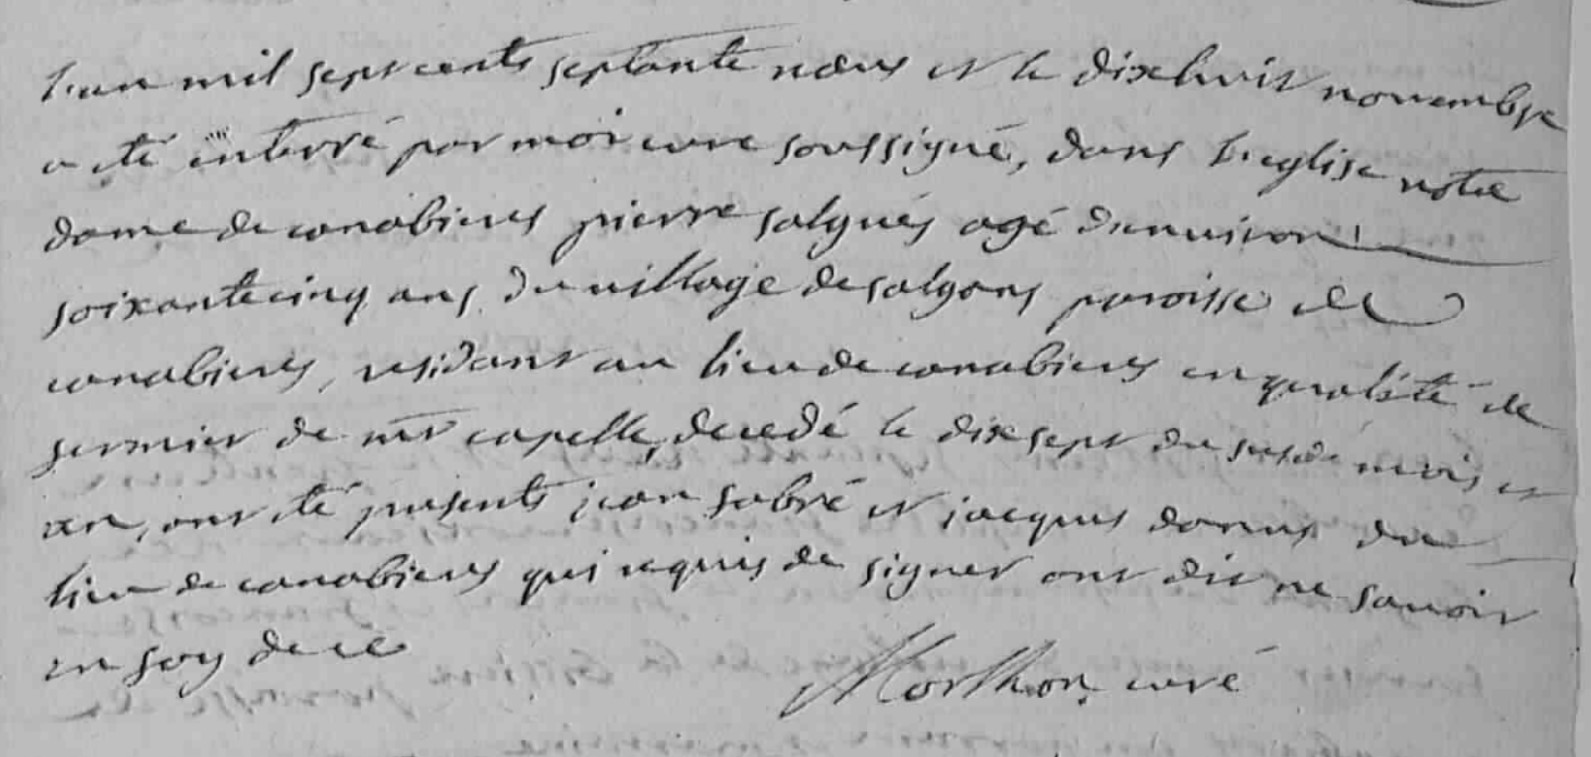 l'an mil sept cents septante neus et le dixhuit novembre
a eté enterré par moi curé soussigné, dans l'eglise notre
dame de canabieres pierre salgués agé d'environ
soixante cinq ans du village de salgans paroisse de
canabieres, residant au lieu de canabieres en qualité de
fermier de mr capelle, decedé le dix sept du susd. mois et
an, ont eté presents jean fabré et jacques du
lieu de canabieres qui requis de signer ont dit ne savoir
en foy de ce
Morthon curé